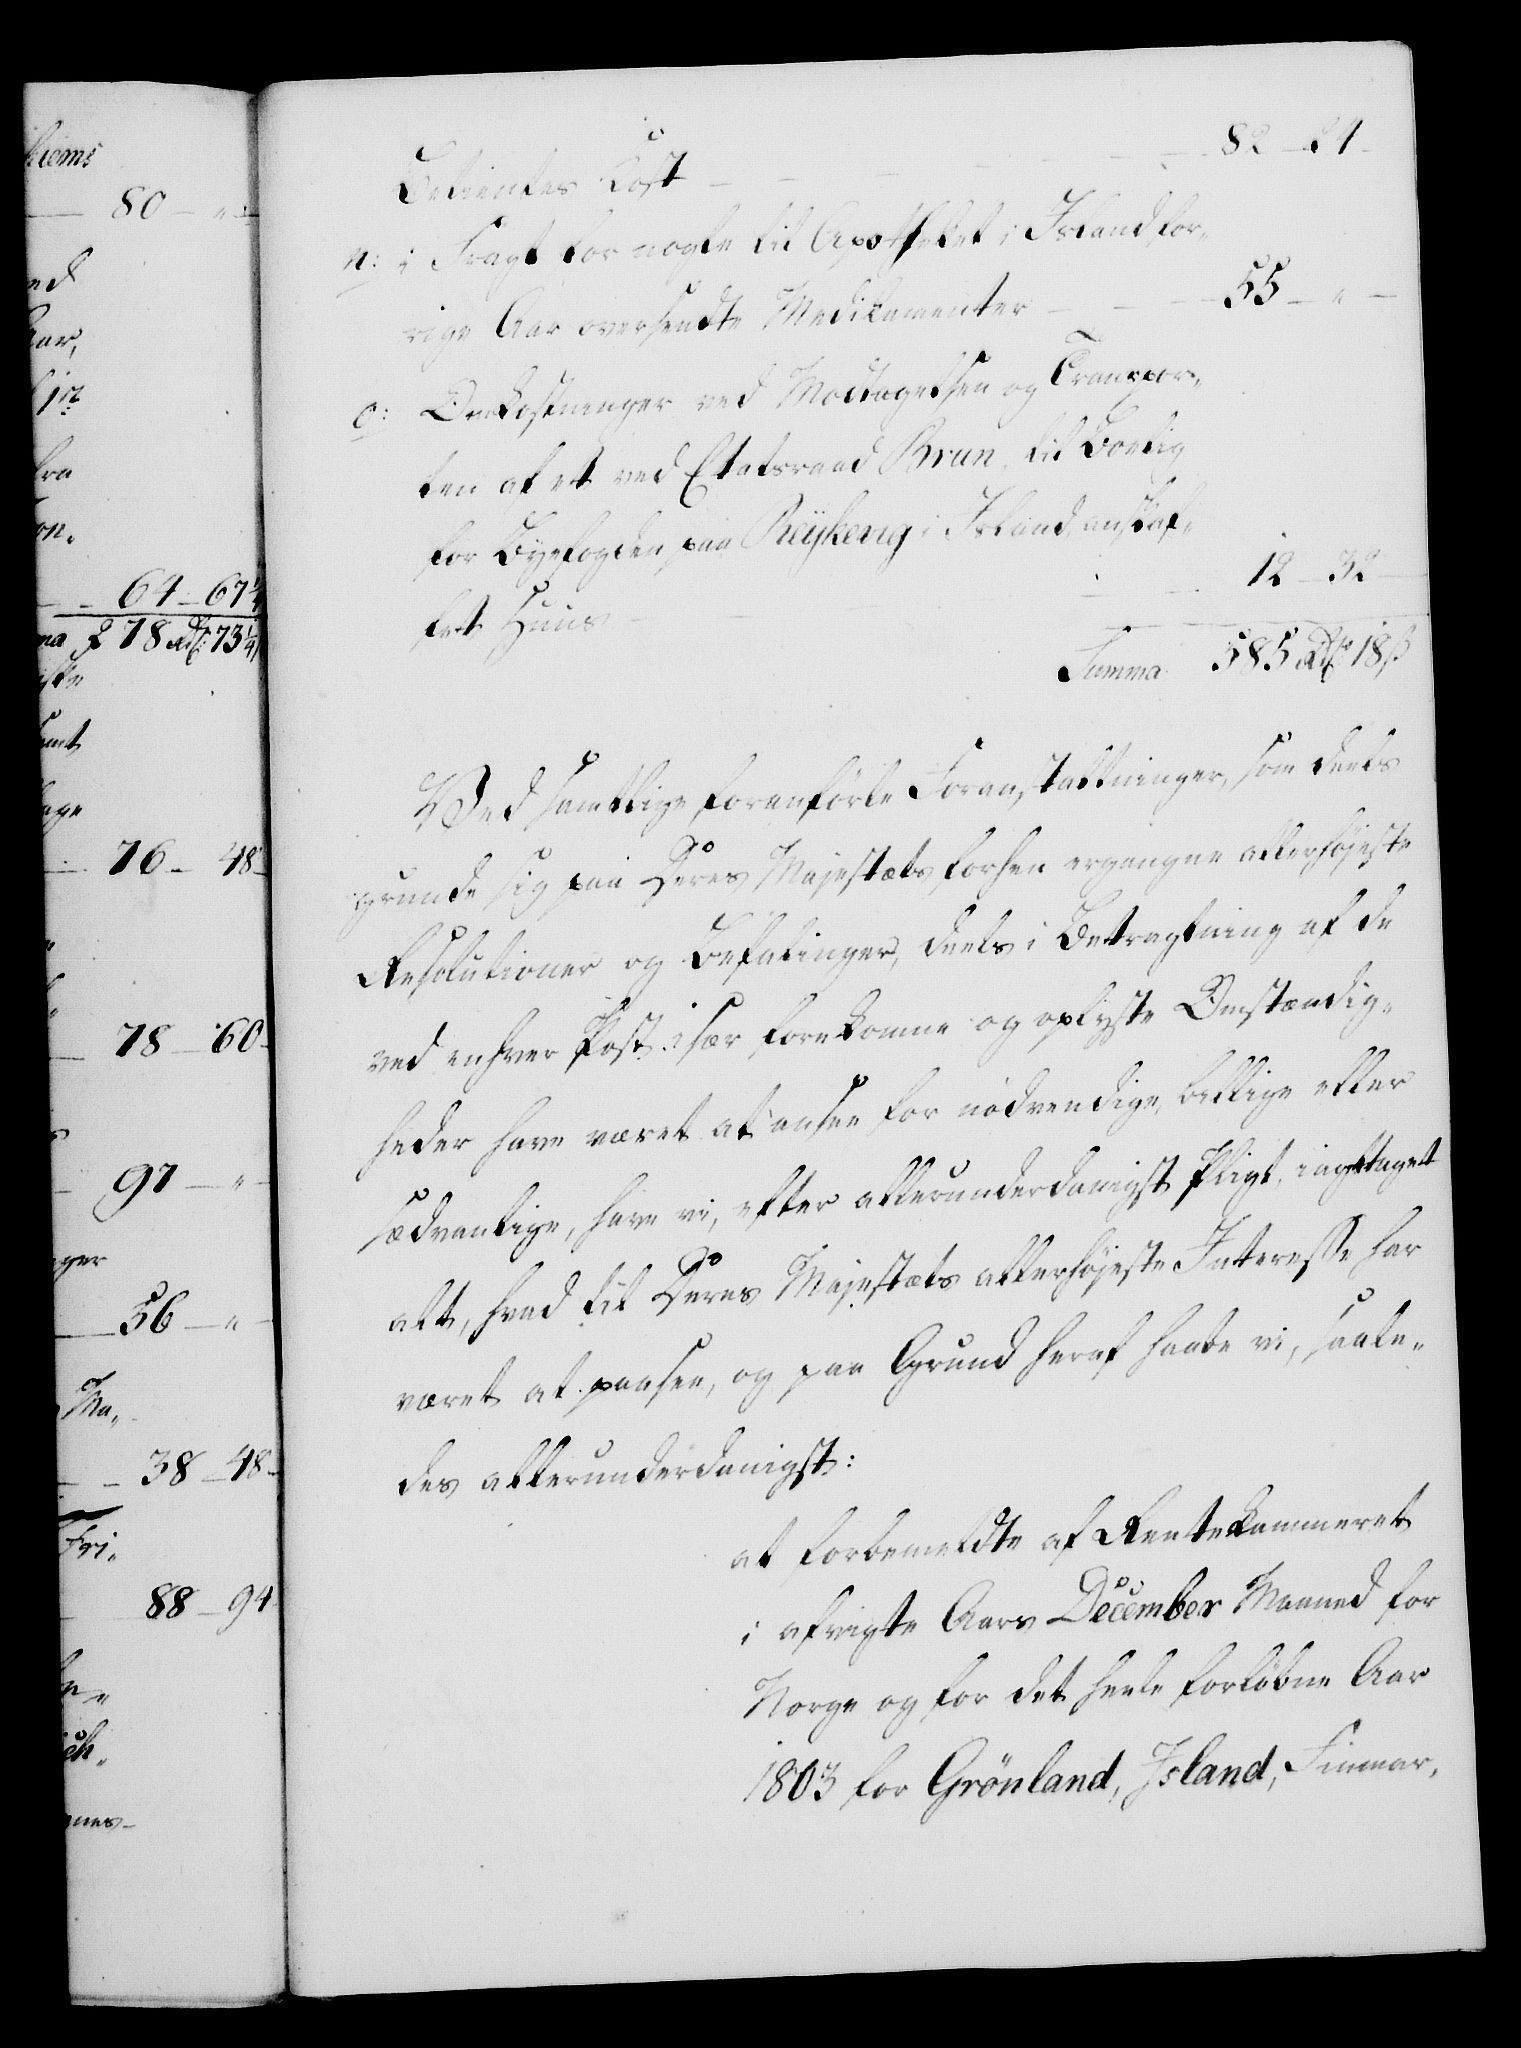 kiems
80 — "
ed
ar,
fra
on.
64 – 67 1/4
ma 278 Rdlr 73 1/4
76 – 48
78 – 60
97 — "
ger
56 — "
Ma,
38 – 48
Fri,
88 – 94
ch,
nes
Betientes Kost — — — — 82 – 24
n: i Fragt for nogle til Apotheket i Island for-
rige Aar oversendte Medikamenter — — 55 – "
o: Omkostninger ved Modtagelsen og Transpor-
ten af et ved Etatsraad Brun til Boelig
for Byefogden paa Reykevig i Island anskaf-
fet Huus — — — 12 – 32
Summa 585 Rdlr 18 ß
Ved samtlige foranførte Foranstaltninger, som deels
grunde sig paa Deres Majestæts forhen ergangne allerhøjeste
Resolutioner og Befalinger, deels i Betragtning af de
ved enhver Post især forekomne og oplyste Omstændig-
heder have været at ansee for nødvendige, billige eller
sædvanlige, have vi, efter allerunderdanigst Pligt, iagttaget
alt, hvad til Deres Majestæts allerhøjeste Interesse har
været at paasee, og paa Grund heraf haabe vi, saale-
des allerunderdanigst:
at forbemeldte af Rentekammeret
i afvigte Aars December Maaned for
Norge og for det heele forløbne Aar
1803 for Grönland, Island, Finmar-